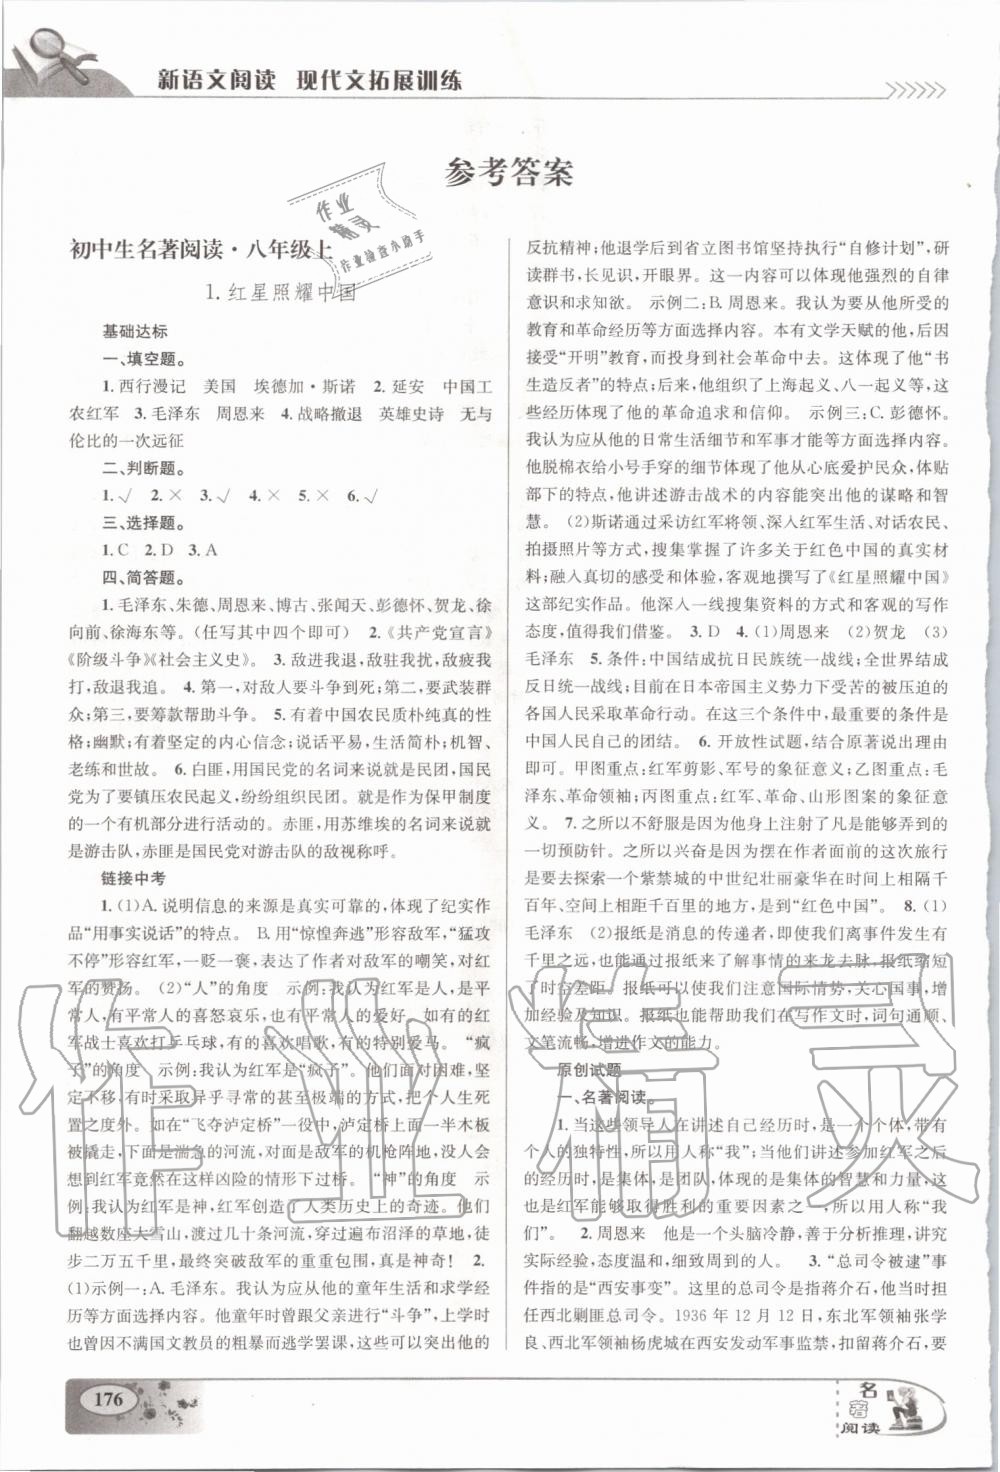 新语文阅读 现代文拓展训练
参考答案
作业
精灵
作业检查小助手
初中生名著阅读·八年级上
1.红星照耀中国
基础达标
一、填空题。
1.西行漫记 美国 埃德加·斯诺 2.延安 中国工
农红军 3.毛泽东 周恩来 4.战略撤退 英雄史诗 无与
伦比的一次远征
二、判断题。
1.√ 2.× 3.√ 4.× 5.× 6.√
三、选择题。
1.C 2.D 3.A
四、简答题。
1.毛泽东、朱德、周恩来、博古、张闻天、彭德怀、贺龙、徐
向前、徐海东等。(任写其中四个即可) 2.《共产党宣言》
《阶级斗争》《社会主义史》。 3.敌进我退,敌驻我扰,敌疲我
打,敌退我追。 4.第一,对敌人要斗争到死;第二,要武装群
众;第三,要筹款帮助斗争。 5.有着中国农民质朴纯真的性
格;幽默;有着坚定的内心信念;说话平易,生活简朴;机智、
老练和世故。 6.白匪,用国民党的名词来说就是民团,国民
党为了要镇压农民起义,纷纷组织民团。就是作为保甲制度
的一个有机部分进行活动的。赤匪,用苏维埃的名词来说就
是游击队,赤匪是国民党对游击队的敌视称呼。
链接中考
1.(1)A.说明信息的来源是真实可靠的,体现了纪实作
品“用事实说话”的特点。 B.用“惊惶奔逃”形容敌军,“猛攻
不停”形容红军,一贬一褒,表达了作者对敌军的嘲笑,对红
军的赞扬。 (2)“人”的角度 示例:我认为红军是人,是平
常人,有平常人的喜怒哀乐,也有平常人的爱好。如有的红
军战士喜欢打乒乓球,有的喜欢唱歌,有的特别爱马。 “疯
子”的角度 示例:我认为红军是“疯子”。他们面对困难,坚
定不移,有时采取异乎寻常的甚至极端的方式,把个人生死
置之度外。如在“飞夺泸定桥”一战中,泸定桥上面一半木板
被撬走,下面是湍急的河流,对面是敌军的机枪阵地,没人会
想到红军竟然在这样的情形下过江。 “神”的角度 示
例:我认为红军是神,红军创造了人类历史上的奇迹。他们
翻越数座大雪山,渡过几十条河流,穿过遍布沼泽的草地,徒
步二万五千里,最终突破敌军的重重包围,真是神奇! 2.
(1)示例一:A.毛泽东。我认为应从他的童年生活和求学经
历等方面选择内容。他童年时曾跟父亲进行“斗争”,上学时
也曾因不满国文教员的粗暴而逃学罢课,这些可以突出他的
反抗精神;他退学后到省立图书馆坚持执行“自修计划”,研
读群书,长见识,开眼界。这一内容可以体现他强烈的自律
意识和求知欲。 示例二:B.周恩来。我认为要从他所受的
教育和革命经历等方面选择内容。本有文学天赋的他,后因
接受“开明”教育,而投身到社会革命中去。这体现了他“书
生造反者”的特点;后来,他组织了上海起义、八一起义等,这
些经历体现了他的革命追求和信仰。 示例三:C.彭德怀。
我认为应从他的日常生活细节和军事才能等方面选择内容。
他脱棉衣给小号手穿的细节突出了他从心底爱护民众,体贴
部下的特点,他讲述游击战术的内容能突出他的谋略和智
慧。 (2)斯诺通过采访红军将领、深入红军生活、对话农民、
拍摄照片等方式,搜集掌握了许多关于红色中国的真实材
料;融入真切的感受和体验,客观地撰写了《红星照耀中国》
这部纪实作品。他深入一线搜集资料的方式和客观的写作
态度,值得我们借鉴。 3.D 4.(1)周恩来 (2)贺龙 (3)
毛泽东 5.条件:中国结成抗日民族统一战线;全世界结成
反日统一战线;目前在日本帝国主义势力下受苦的被压迫的
各国人民采取革命行动。在这三个条件中,最重要的条件是
中国人民自己的团结。 6.开放性试题,结合原著说出理由
即可。甲图重点:红军剪影、军号的象征意义;乙图重点:毛
泽东、革命领袖;丙图重点:红军、革命、山形图案的象征意
义。 7.之所以不舒服是因为他身上注射了凡是能够弄到的
一切预防针。之所以兴奋是因为摆在作者面前的这次旅行
是要去探索一个紫禁城的中世纪壮丽豪华在时间上相隔千
百年、空间上相距千百里的地方,是到“红色中国”。 8.(1)
毛泽东 (2)报纸是消息的传递者,即使我们离事件发生有
千里之远,也能通过报纸来了解事情的来龙去脉,报纸缩短
了时空差距。报纸可以使我们注意国际情势,关心国事,增
加经验及知识。报纸也能帮助我们在写作文时,词句通顺、
文笔流畅,增进作文的能力。
原创试题
一、名著阅读。
1.当这些领导人在讲述自己经历时,是一个个个体,带有
个人的独特性,所以用人称“我”;当他们讲述参加红军之后
的经历时,是集体,是团队,体现的是集体的智慧和力量,这
也是红军能够取得胜利的重要因素之一,所以用人称“我
们”。 2.周恩来 头脑冷静,善于分析推理,讲究
实际经验,态度温和,细致周到。 3.“总司令被逮”事
件指的是“西安事变”。这里的总司令是指蒋介石,他当时担
任西北剿匪总司令。1936年12月12日,东北军领袖张学
良、西北军领袖杨虎城在西安发动军事监禁,扣留蒋介石,要
作业精灵
176
名著
阅读